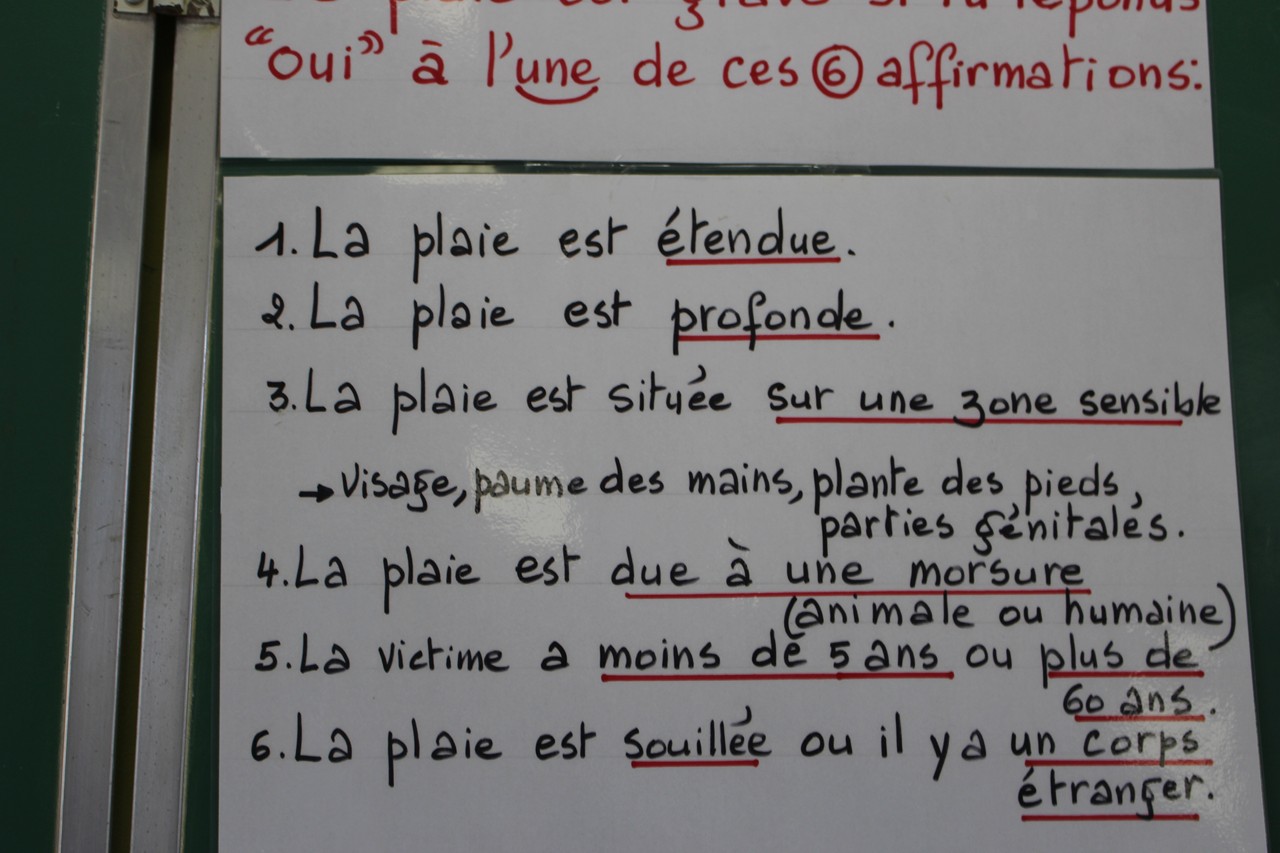 plaie est grave si tu réponds
"oui" à l'une de ces 6 affirmations:
1. La plaie est étendue.
2. La plaie est profonde.
3. La plaie est située sur une zone sensible
→ Visage, paume des mains, plante des pieds,
parties génitales.
4. La plaie est due à une morsure
(animale ou humaine)
5. La victime a moins de 5 ans ou plus de
60 ans.
6. La plaie est souillée ou il y a un corps
étranger.